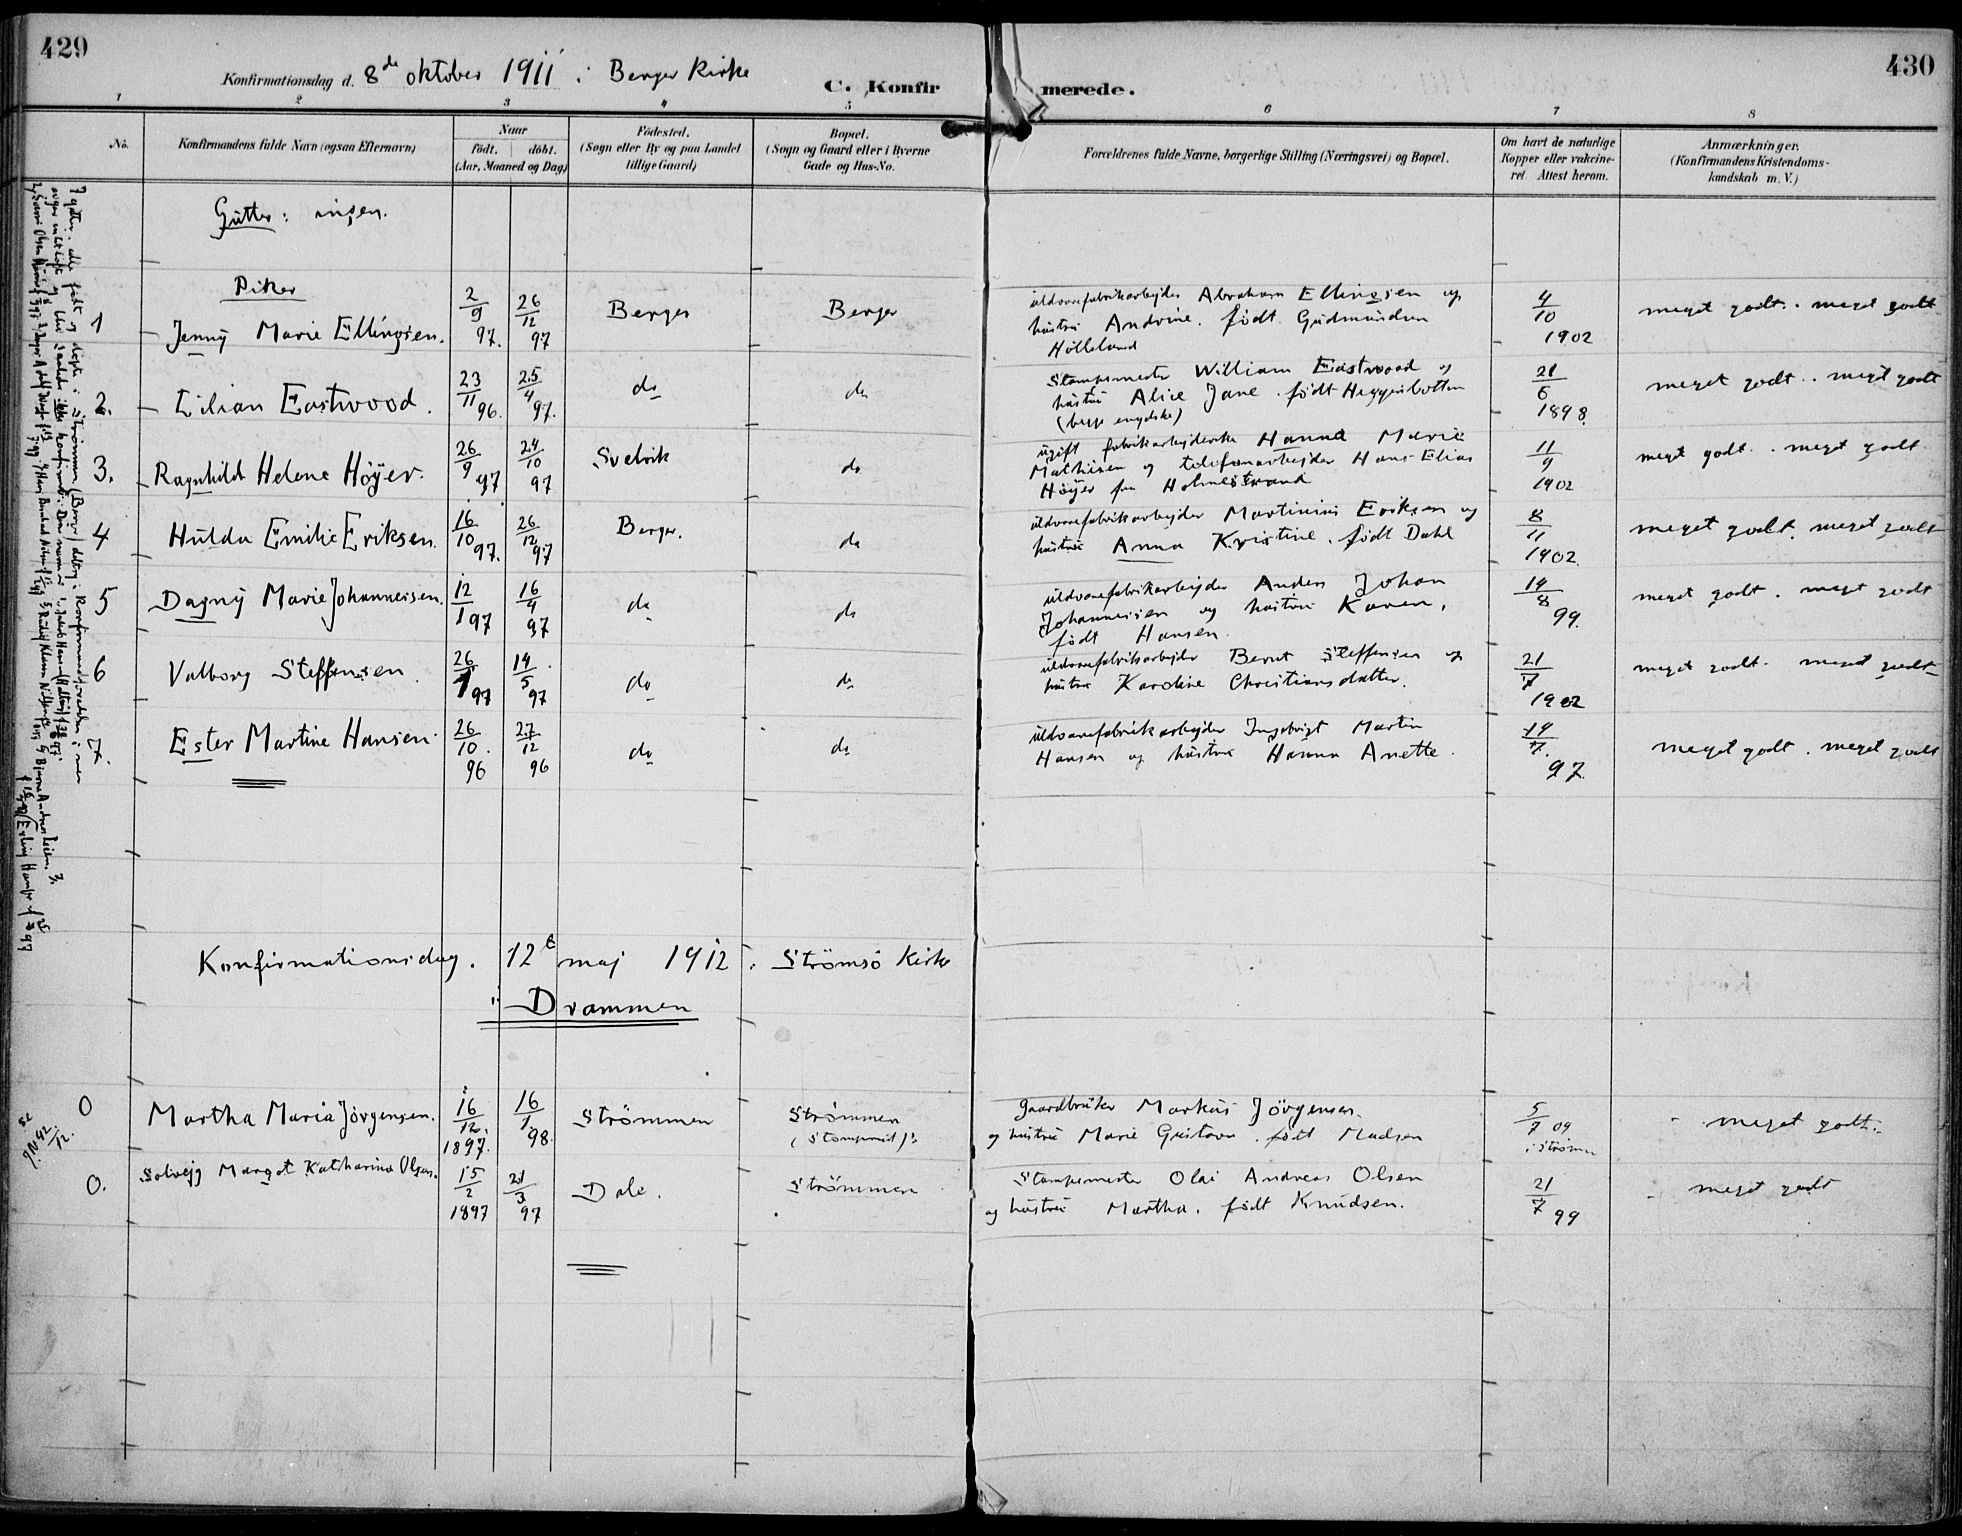 429
430
Konfirmationsdag d. 8de oktober 1911 i Berger Kirke
C. Konfirmerede.
1 2 3 4 5 6 7 8
No.
Konfirmandens fulde Navn (ogsaa Efternavn)
Naar
födt. döbt.
(Aar, Maaned og Dag)
Födested.
(Sogn eller By og paa Landet
tillige Gaard)
Bopæl.
(Sogn og Gaard eller i Byerne
Gade og Hus-No.
Forældrenes fulde Navne, borgerlige Stilling (Næringsvei) og Bopæl.
Om havt de naturlige
Kopper eller vakcine-
ret. Attest herom.
Anmærkninger.
(Konfirmandens Kristendoms-
kundskab m. V.)
Gutter: ingen.
Piker
1 Jenny Marie Ellingsen. 2/9 97. 26/12 97 Berger Berger
uldvarefabrikarbejder Abraham Ellingsen og
hustru Andrine. født Gudmundsen
Hølleland
4/10 1902 meget godt. meget godt
2. Lilian Eastwood. 23/11 96. 25/4 97. do do
Stampemester William Eastwood og
hustru Alice Jane født Heggenbotten
(begge engelske)
21/6 1898 meget godt. meget godt
3. Ragnhild Helene Höyer. 26/9 97 24/10 97 Svelvik do
ugift fabrikarbejderske Hanna Marie
Mathisen og telefonarbejder Hans Elias
Höyer fra Holmestrand
11/9 1902 meget godt. meget godt
4 Hulda Emilie Eriksen. 16/10 97. 26/12 97 Berger. do
uldvarefabrikarbejder Martinius Eriksen og
hustru Anna Kristine. født Dahl
8/11 1902. meget godt. meget godt
5 Dagny Marie Johannesen. 12/1 97 16/4 97 do do
uldvarefabrikarbejder Anders Johan
Johannesen og hustru Karen,
født Hansen.
14/8 99. meget godt. meget godt
6 Valborg Steffensen. 26/1 97 14/5 97 do do
uldvarefabrikarbejder Bernt Steffensen og
hustru Karoline Christiansdatter.
21/7 1902 meget godt. meget godt
7. Ester Martine Hansen. 26/10. 96 27/12 96 do do
uldvarefabrikarbejder Ingebrigt Martin
Hansen og hustru Hanna Anette.
14/7. 97. meget godt. meget godt
Konfirmationsdag. 12te maj 1912. i Strömsö Kirke
i Drammen
0 Martha Maria Jörgensen. 16/12. 1897. 16/1 98. Strömmen Strömmen
gaardbruker Markus Jörgensen.
og hustru Marie Gustava. født Madsen
5/7 09 i Strömm meget godt.
0. Solvejg Margot Katharina Olsen. 15/2 1897 21/3 97 Dale. Strömmen
Stampemester Olai Andreas Olsen
og hustru Martha. født Knudsen.
21/7 99 meget godt